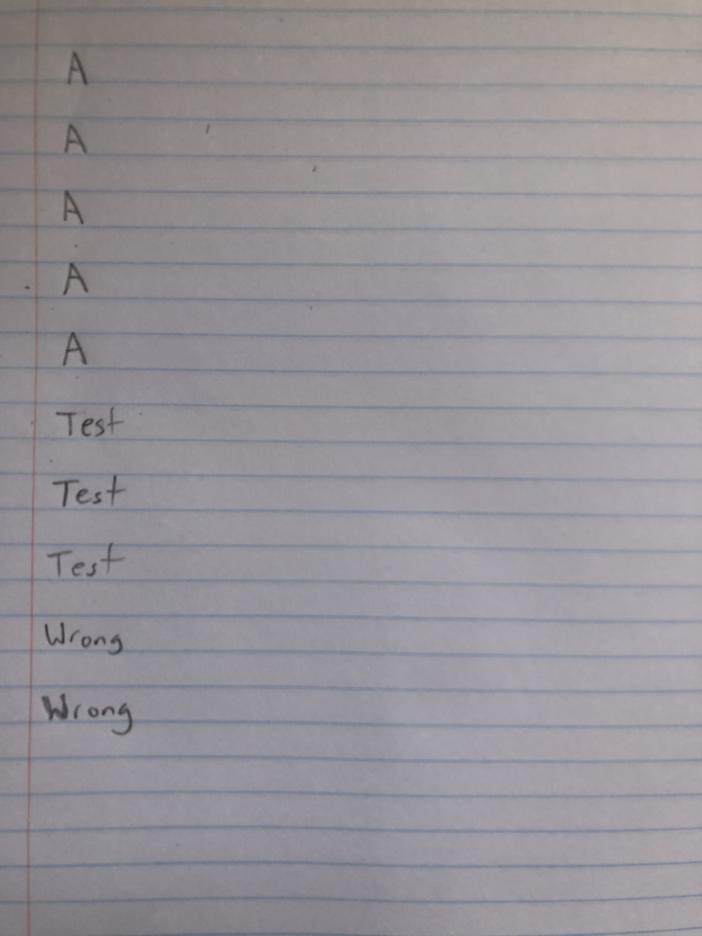 A
A
A
A
A
Test
Test
Test
Wrong
Wrong